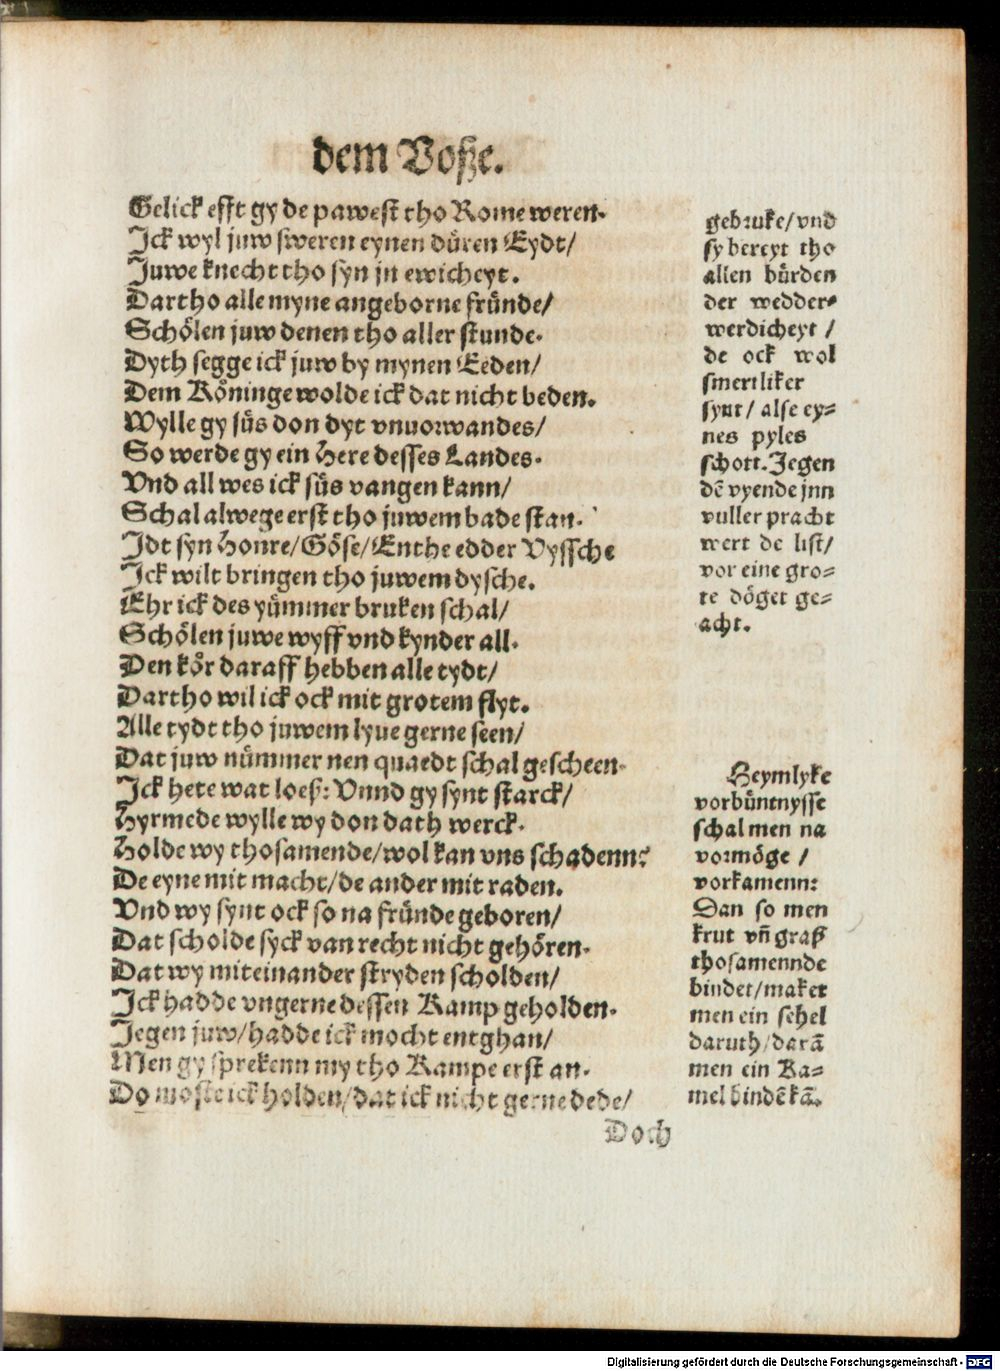 dem Voſze.
Gelick efft gy de pawest tho Rome weren.
Ick wyl juw sweren eynen düren Eydt/
Juwe knecht tho syn jn ewicheyt.
Dartho alle myne angeborne fründe/
Schölen juw denen tho aller stunde.
Dyth segge ick juw by mynen Eeden/
Dem Köninge wolde ick dat nicht beden.
Wylle gy süs don dyt vnuorwandes/
So werde gy ein Here desses Landes.
Vnd all wes ick süs vangen kann/
Schal alwege erst tho juwem bade stan.
Idt syn Honre/Göse/Enthe edder Vyssche
Ick wilt bringen tho juwem dysche.
Ehr ick des yümmer bruken schal/
Schölen juwe wyff vnd kynder all.
Den kör daraff hebben alle tydt/
Dartho wil ick ock mit grotem flyt.
Alle tydt tho juwem lyue gerne seen/
Dat juw nümmer nen quaedt schal gescheen.
Ick hete wat loeß: Vnnd gy synt starck/
Hyrmede wylle wy don dath werck.
Holde wy thosamende/wol kan vns schadenn?
De eyne mit macht/de ander mit raden.
Vnd wy synt ock so na fründe geboren/
Dat scholde syck van recht nicht gehören.
Dat wy miteinander stryden scholden/
Ick hadde vngerne dessen Kamp geholden.
Jegen juw/hadde ick mocht entghan/
Men gy sprekenn my tho Kampe erst an.
Do moste ick holden/dat ick nicht gerne dede/
Doch
gebruke/vnd
sy bereyt tho
allen bürden
der wedder-
werdicheyt /
de ock wol
smertliker
synt/ alse ey-
nes pyles
schott. Jegen
dē vyende jnn
vuller pracht
wert de list/
vor eine gro-
te döget ge-
acht.
Heymlyke
vorbüntnysse
schal men na
vormöge /
vorkamenn:
Dan so men
krut vn̄ graß
thosamennde
bindet/maket
men ein sehel
daruth/darā
men ein Ka-
mel bindē kā.
Digitalisierung gefördert durch die Deutsche Forschungsgemeinschaft - DFG